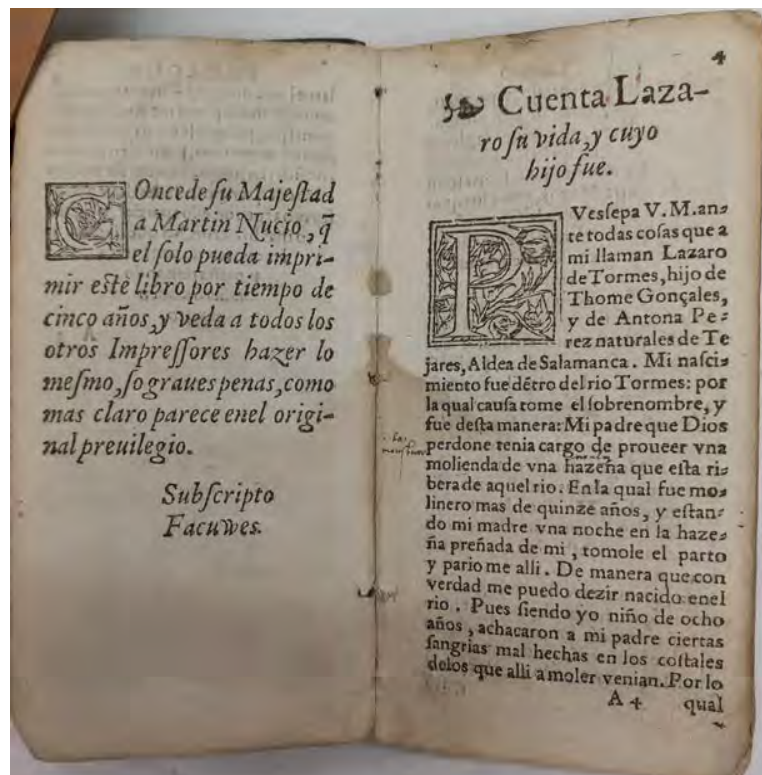 COncede su Majestad
a Martin Nucio, q̃
el solo pueda impri-
mir este libro por tiempo de
cinco años, y veda a todos los
otros Impressores hazer lo
mesmo, so graues penas, como
mas claro parece enel origi-
nal preuilegio.
Subscripto
Facuwes.
4
Cuenta Laza-
ro su vida, y cuyo
hijo fue.
PVes sepa V. M. an-
te todas cosas que a
mi llaman Lazaro
de Tormes, hijo de
Thome Gonçales,
y de Antona Pe-
rez naturales de Te
jares, Aldea de Salamanca. Mi nasci-
miento fue dẽtro del rio Tormes: por
la qual causa tome el sobrenombre, y
fue desta manera: Mi padre que Dios
perdone tenia cargo de proueer vna
molienda de vna hazeña que esta ri-
bera de aquel rio. En la qual fue mo-
linero mas de quinze años, y estan-
do mi madre vna noche en la haze-
ña preñada de mi, tomole el parto
y pario me alli. De manera que con
verdad me puedo dezir nacido enel
rio. Pues siendo yo niño de ocho
años, achacaron a mi padre ciertas
sangrias mal hechas en los costales
delos que alli a moler venian. Por lo
A 4 qual